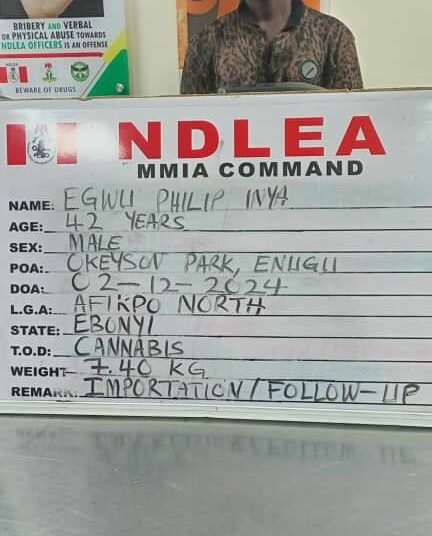 BRIBERY AND VERBAL
OR PHYSICAL ABUSE TOWARDS
NDLEA OFFICERS IS AN OFFENSE
BEWARE OF DRUGS
NDLEA
MMIA COMMAND
NAME: EGWU PHILIP INYA
AGE: 42 YEARS
SEX: MALE
POA: OKEYSON PARK, ENUGU
DOA: 02-12-2024
L.G.A: AFIKPO NORTH
STATE: EBONYI
T.O.D: CANNABIS
WEIGHT 7.40 KG
REMARK: IMPORTATION/FOLLOW-UP